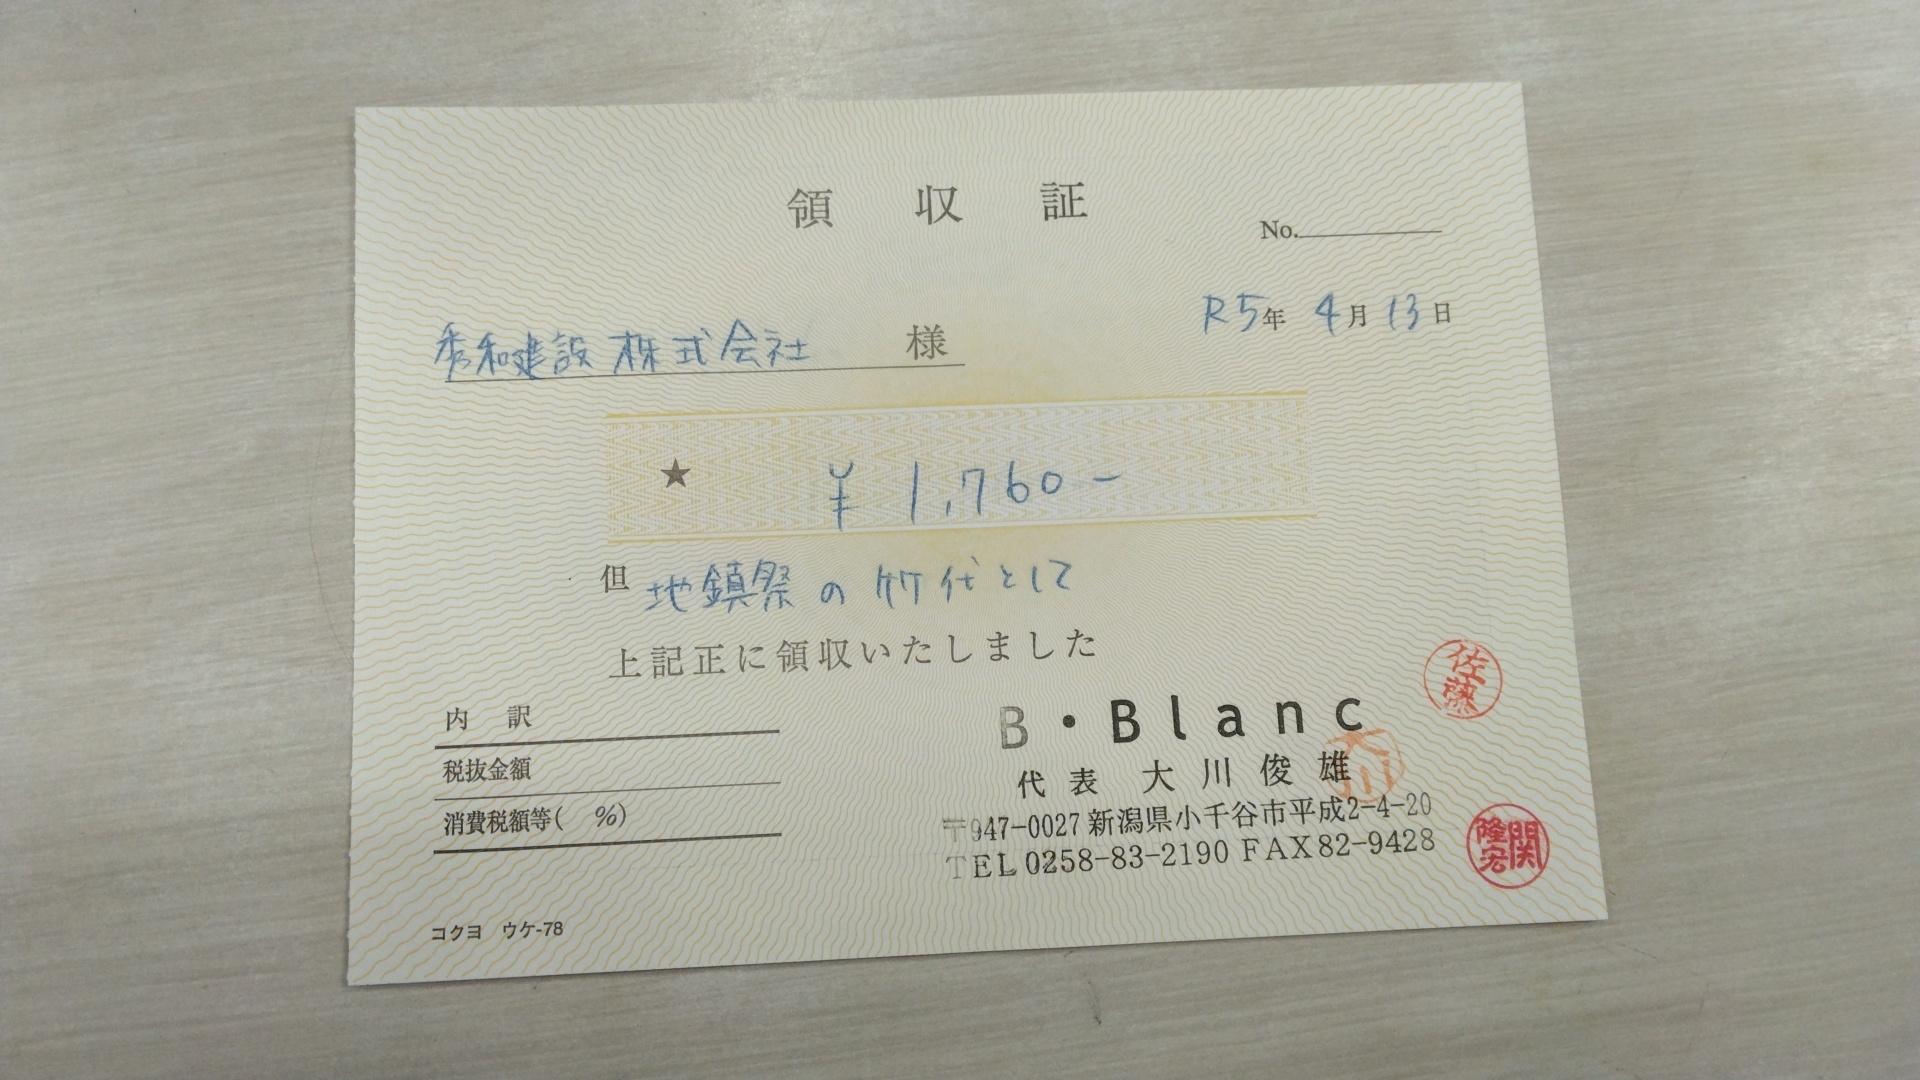 領収証
No.
R5年 4月 13日
秀和建設株式会社 様
★ ¥1,760-
但 地鎮祭の竹代として
上記正に領収いたしました
内訳
税抜金額
消費税額等( %)
B・Blanc
代表 大川俊雄
〒947-0027 新潟県小千谷市平成2-4-20
TEL 0258-83-2190 FAX 82-9428
佐藤
大川
関隆宏
コクヨ ウケ-78